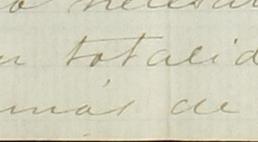 o necesar
n totalid
más de